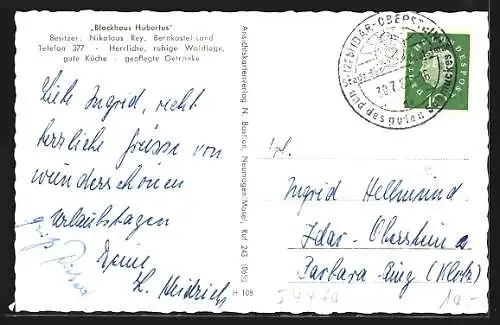 „Blockhaus Hubertus"
Besitzer: Nikolaus Rey, Bernkastel-Land
Telefon 377 - Herrliche, ruhige Waldlage,
gute Küche - gepflegte Getränke
Liebe Ingrid, recht
herzliche Grüsse von
wunderschönen
Urlaubstagen
Deine
H. Heidrich
Ansichtskartenverlag N. Bastian, Neumagen/Mosel, Ruf 243
H 108
IDAR-OBERST
Stadt
und des guten
DEUTSCHE BUNDESPOST
10
An:
Ingrid Hellmund
Idar-Oberstein
Barbara-Ring (Klotz)
10.-